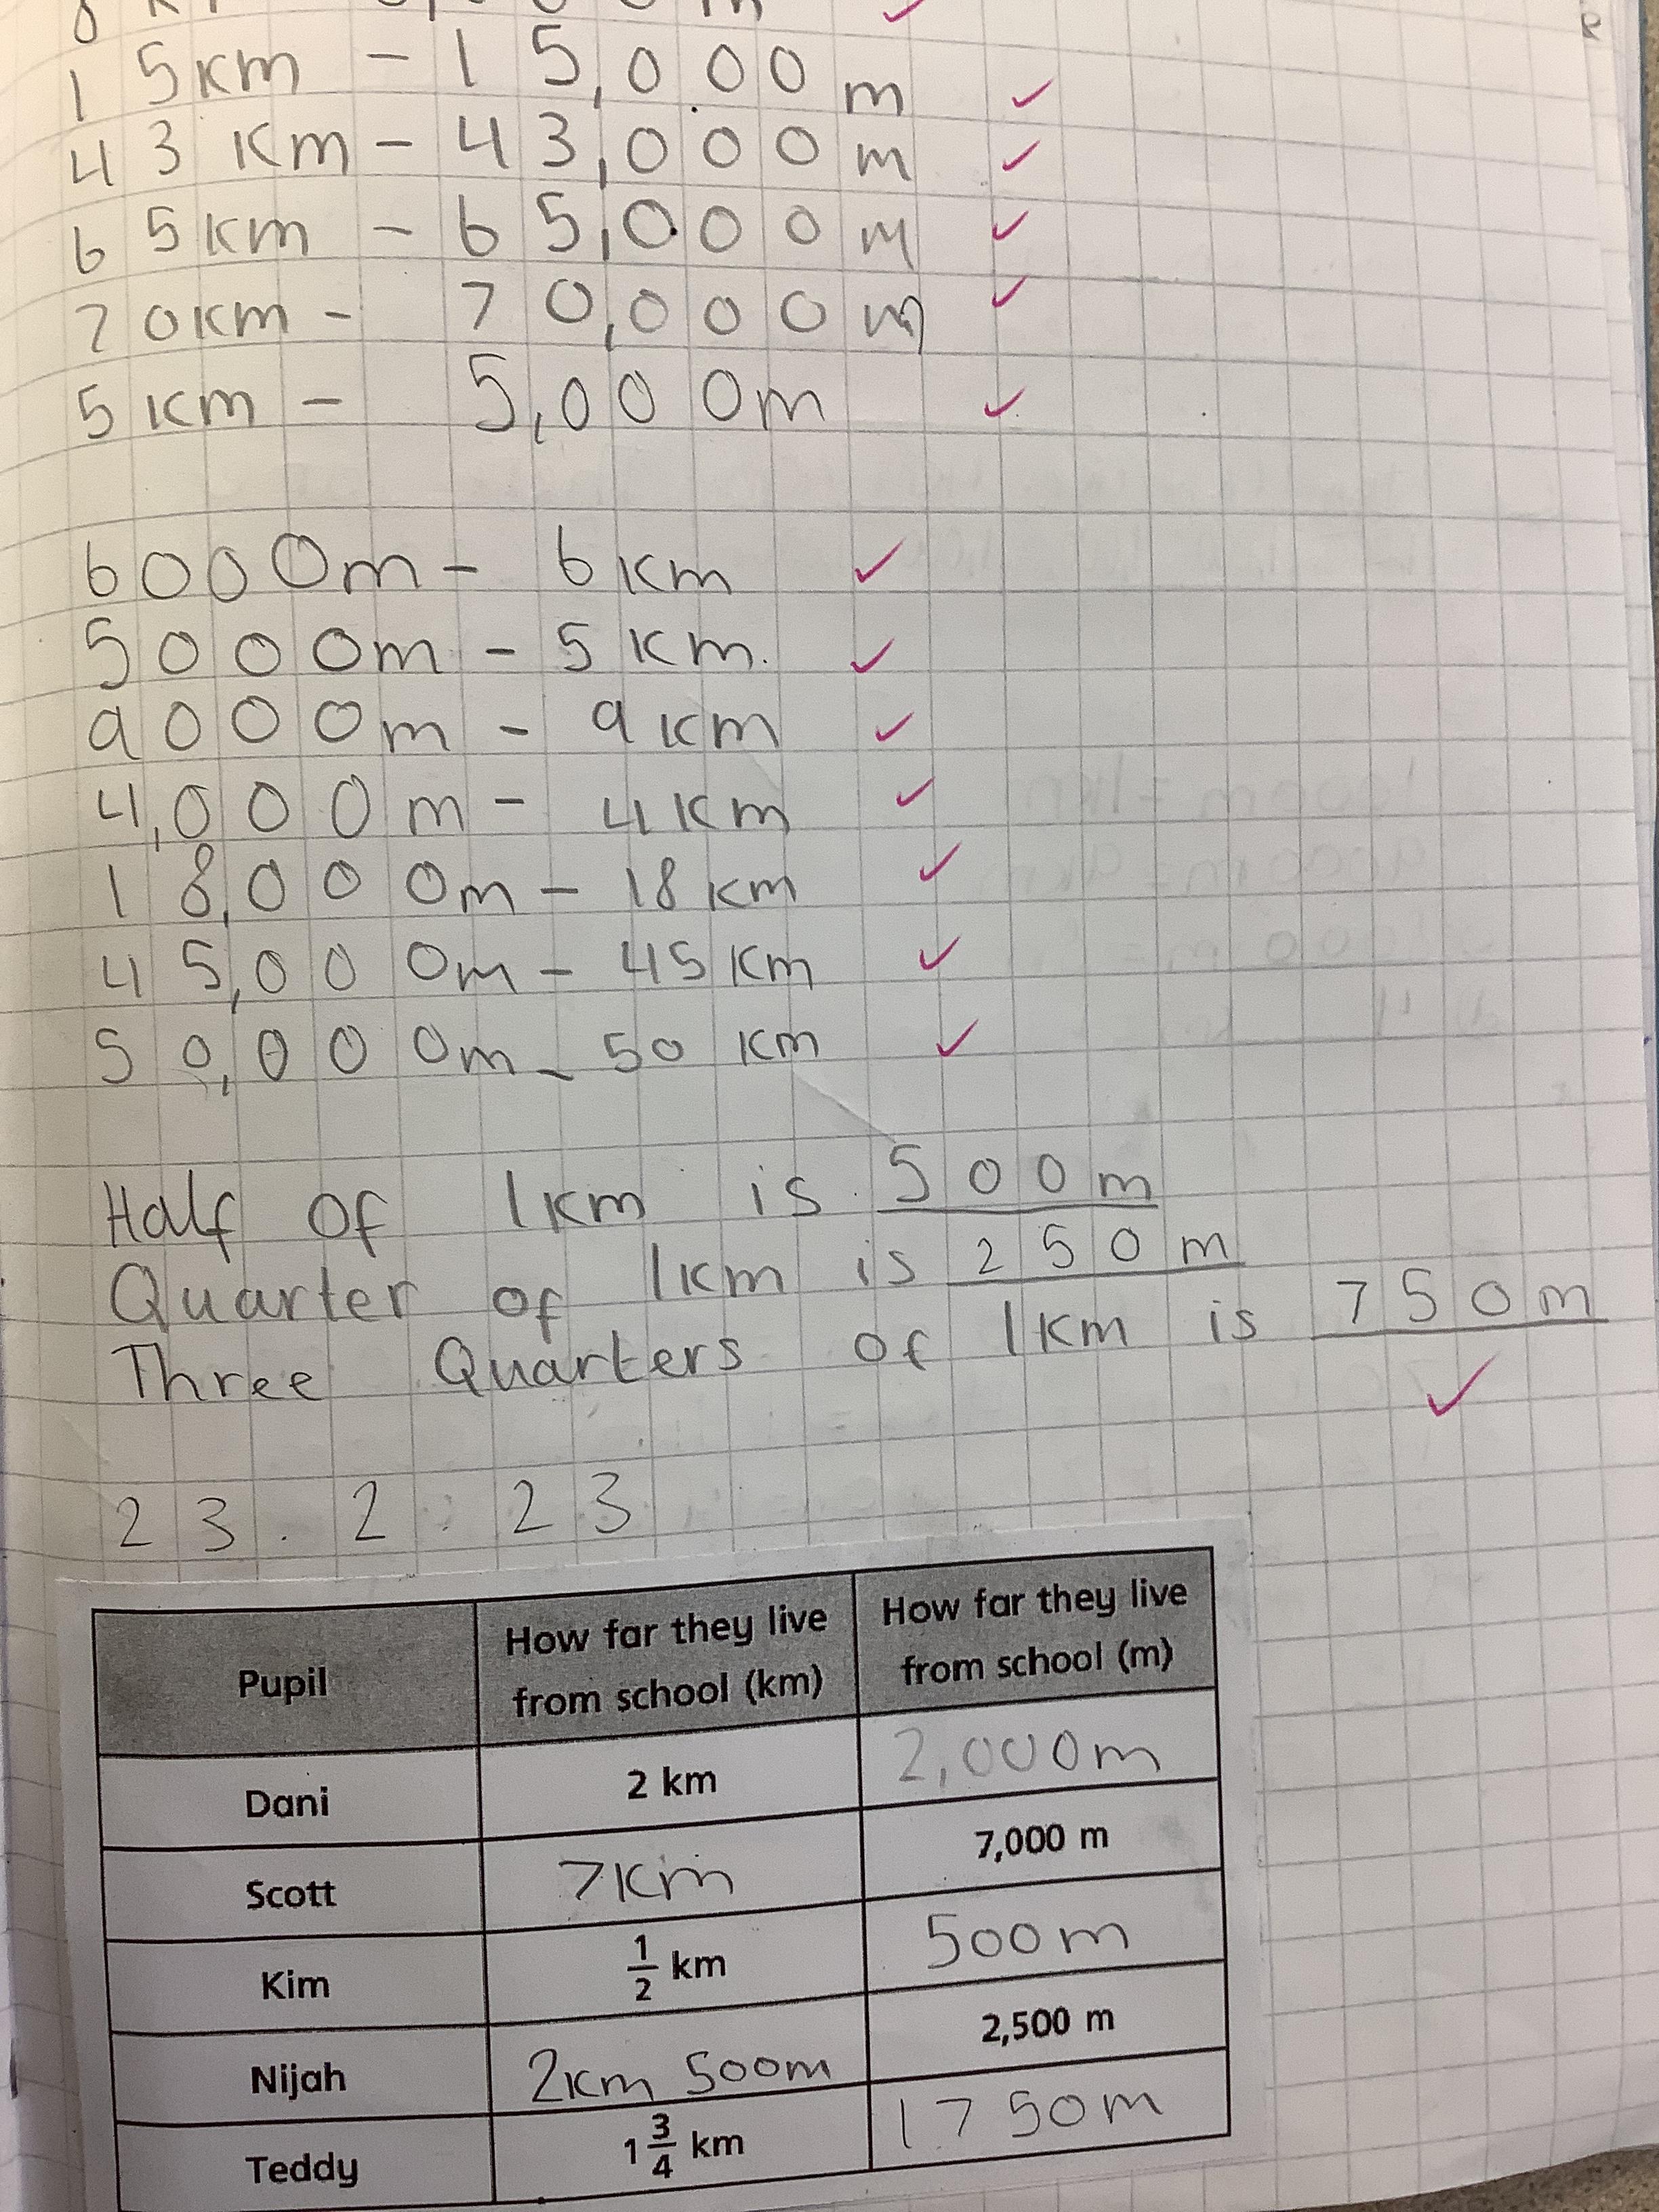 15km - 15,000m
43 km - 43,000m
65km - 65,000m
70km - 70,000m
5km - 5,000m
6000m - 6km
5000m - 5km.
9000m - 9km
4,000m - 4km
18,000m - 18km
45,000m - 45km
50,000m - 50 km
Half of 1km is 500m
Quarter of 1km is 250m
Three Quarters of 1km is 750m
23.2.23
Pupil
How far they live
from school (km)
How far they live
from school (m)
Dani
2 km
2,000m
Scott
7km
7,000 m
Kim
1/2 km
500m
Nijah
2km 500m
2,500 m
Teddy
1 3/4 km
1750m